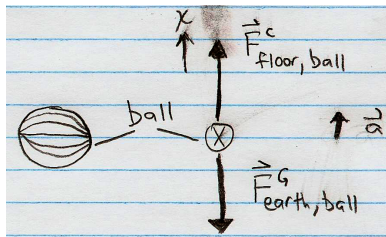 x
F⃗ᶜ
floor, ball
ball
X
a⃗
F⃗ᴳ
earth, ball